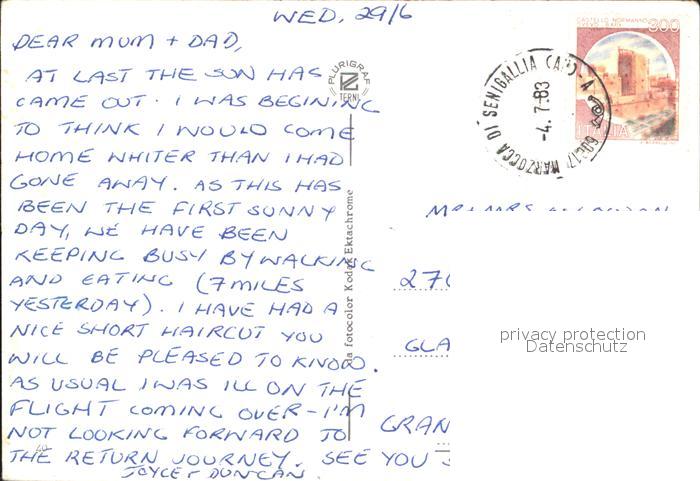 WED, 29/6
DEAR MUM + DAD,
AT LAST THE SUN HAS
CAME OUT. I WAS BEGINING
TO THINK I WOULD COME
HOME WHITER THAN I HAD
GONE AWAY. AS THIS HAS
BEEN THE FIRST SUNNY
DAY, WE HAVE BEEN
KEEPING BUSY BY WALKING
AND EATING (7 MILES
YESTERDAY). I HAVE HAD A
NICE SHORT HAIRCUT YOU
WILL BE PLEASED TO KNOW.
AS USUAL I WAS ILL ON THE
FLIGHT COMING OVER - I'M
NOT LOOKING FORWARD TO
THE RETURN JOURNEY. SEE YOU
JOYCE + DUNCAN
PLURIGRAF
TERNI
da fotocolor Kodak Ektachrome
60017 MARZOCCA DI SENIGALLIA (AN) - A
-4.7.83
CASTELLO NORMANNO
300
ITALIA
MR + MRS
270
GLA
GRAN
privacy protection
Datenschutz